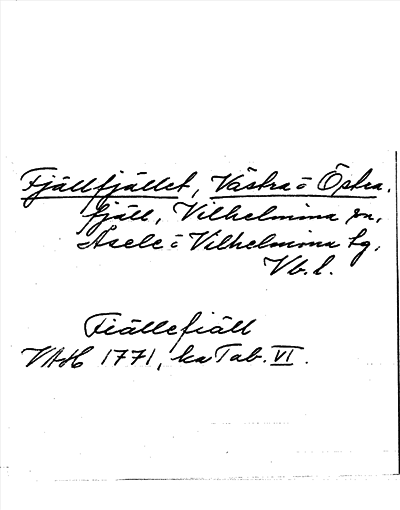 Fjällfjället, Västra o Östra.
fjäll, Vilhelmina sn,
Åsele o Vilhelmina tg,
Vb. l.
Fiällefiäll
VAH 1771, ka Tab. VI.